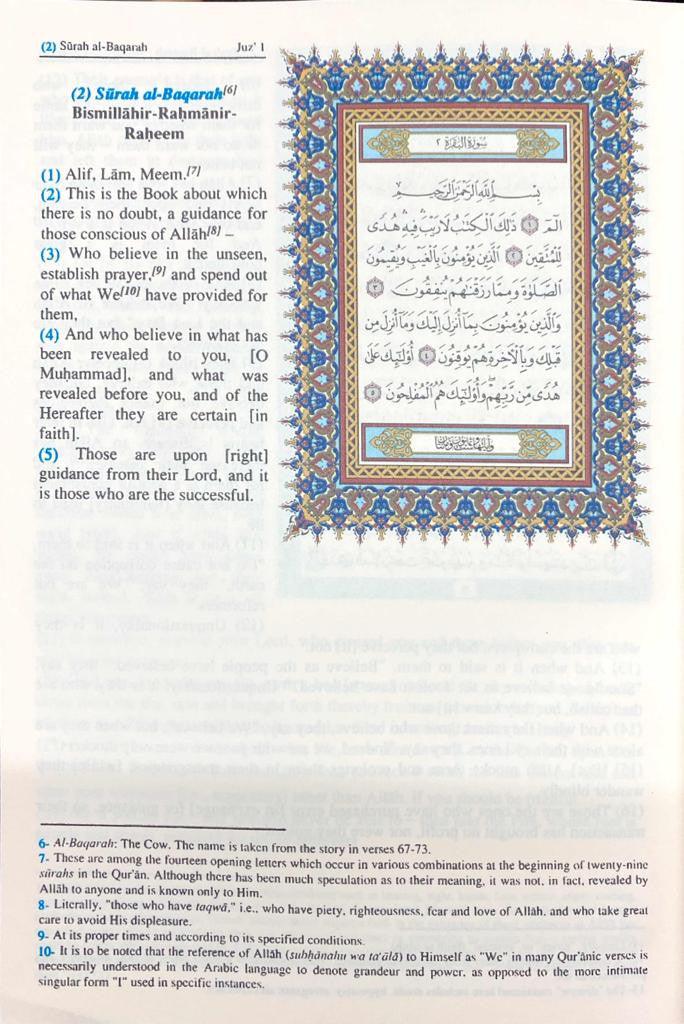 (2) Sūrah al-Baqarah Juz' 1
(2) Sūrah al-Baqarah[6]
Bismillāhir-Raḥmānir-
Raḥeem
(1) Alif, Lām, Meem.[7]
(2) This is the Book about which
there is no doubt, a guidance for
those conscious of Allāh[8] –
(3) Who believe in the unseen,
establish prayer,[9] and spend out
of what We[10] have provided for
them,
(4) And who believe in what has
been revealed to you, [O
Muḥammad], and what was
revealed before you, and of the
Hereafter they are certain [in
faith].
(5) Those are upon [right]
guidance from their Lord, and it
is those who are the successful.
سورة البقرة ٢
بِسْمِ ٱللَّهِ ٱلرَّحْمَٰنِ ٱلرَّحِيمِ
الٓمٓ ١ ذَٰلِكَ ٱلْكِتَٰبُ لَا رَيْبَ ۛ فِيهِ ۛ هُدًى
لِّلْمُتَّقِينَ ٢ ٱلَّذِينَ يُؤْمِنُونَ بِٱلْغَيْبِ وَيُقِيمُونَ
ٱلصَّلَوٰةَ وَمِمَّا رَزَقْنَٰهُمْ يُنفِقُونَ ٣
وَٱلَّذِينَ يُؤْمِنُونَ بِمَآ أُنزِلَ إِلَيْكَ وَمَآ أُنزِلَ مِن
قَبْلِكَ وَبِٱلْءَاخِرَةِ هُمْ يُوقِنُونَ ٤ أُو۟لَٰٓئِكَ عَلَىٰ
هُدًى مِّن رَّبِّهِمْ ۖ وَأُو۟لَٰٓئِكَ هُمُ ٱلْمُفْلِحُونَ ٥
6- Al-Baqarah: The Cow. The name is taken from the story in verses 67-73.
7- These are among the fourteen opening letters which occur in various combinations at the beginning of twenty-nine
sūrahs in the Qur'ān. Although there has been much speculation as to their meaning, it was not, in fact, revealed by
Allāh to anyone and is known only to Him.
8- Literally, "those who have taqwā," i.e., who have piety, righteousness, fear and love of Allāh, and who take great
care to avoid His displeasure.
9- At its proper times and according to its specified conditions.
10- It is to be noted that the reference of Allāh (subḥānahu wa ta'ālā) to Himself as "We" in many Qur'ānic verses is
necessarily understood in the Arabic language to denote grandeur and power, as opposed to the more intimate
singular form "I" used in specific instances.